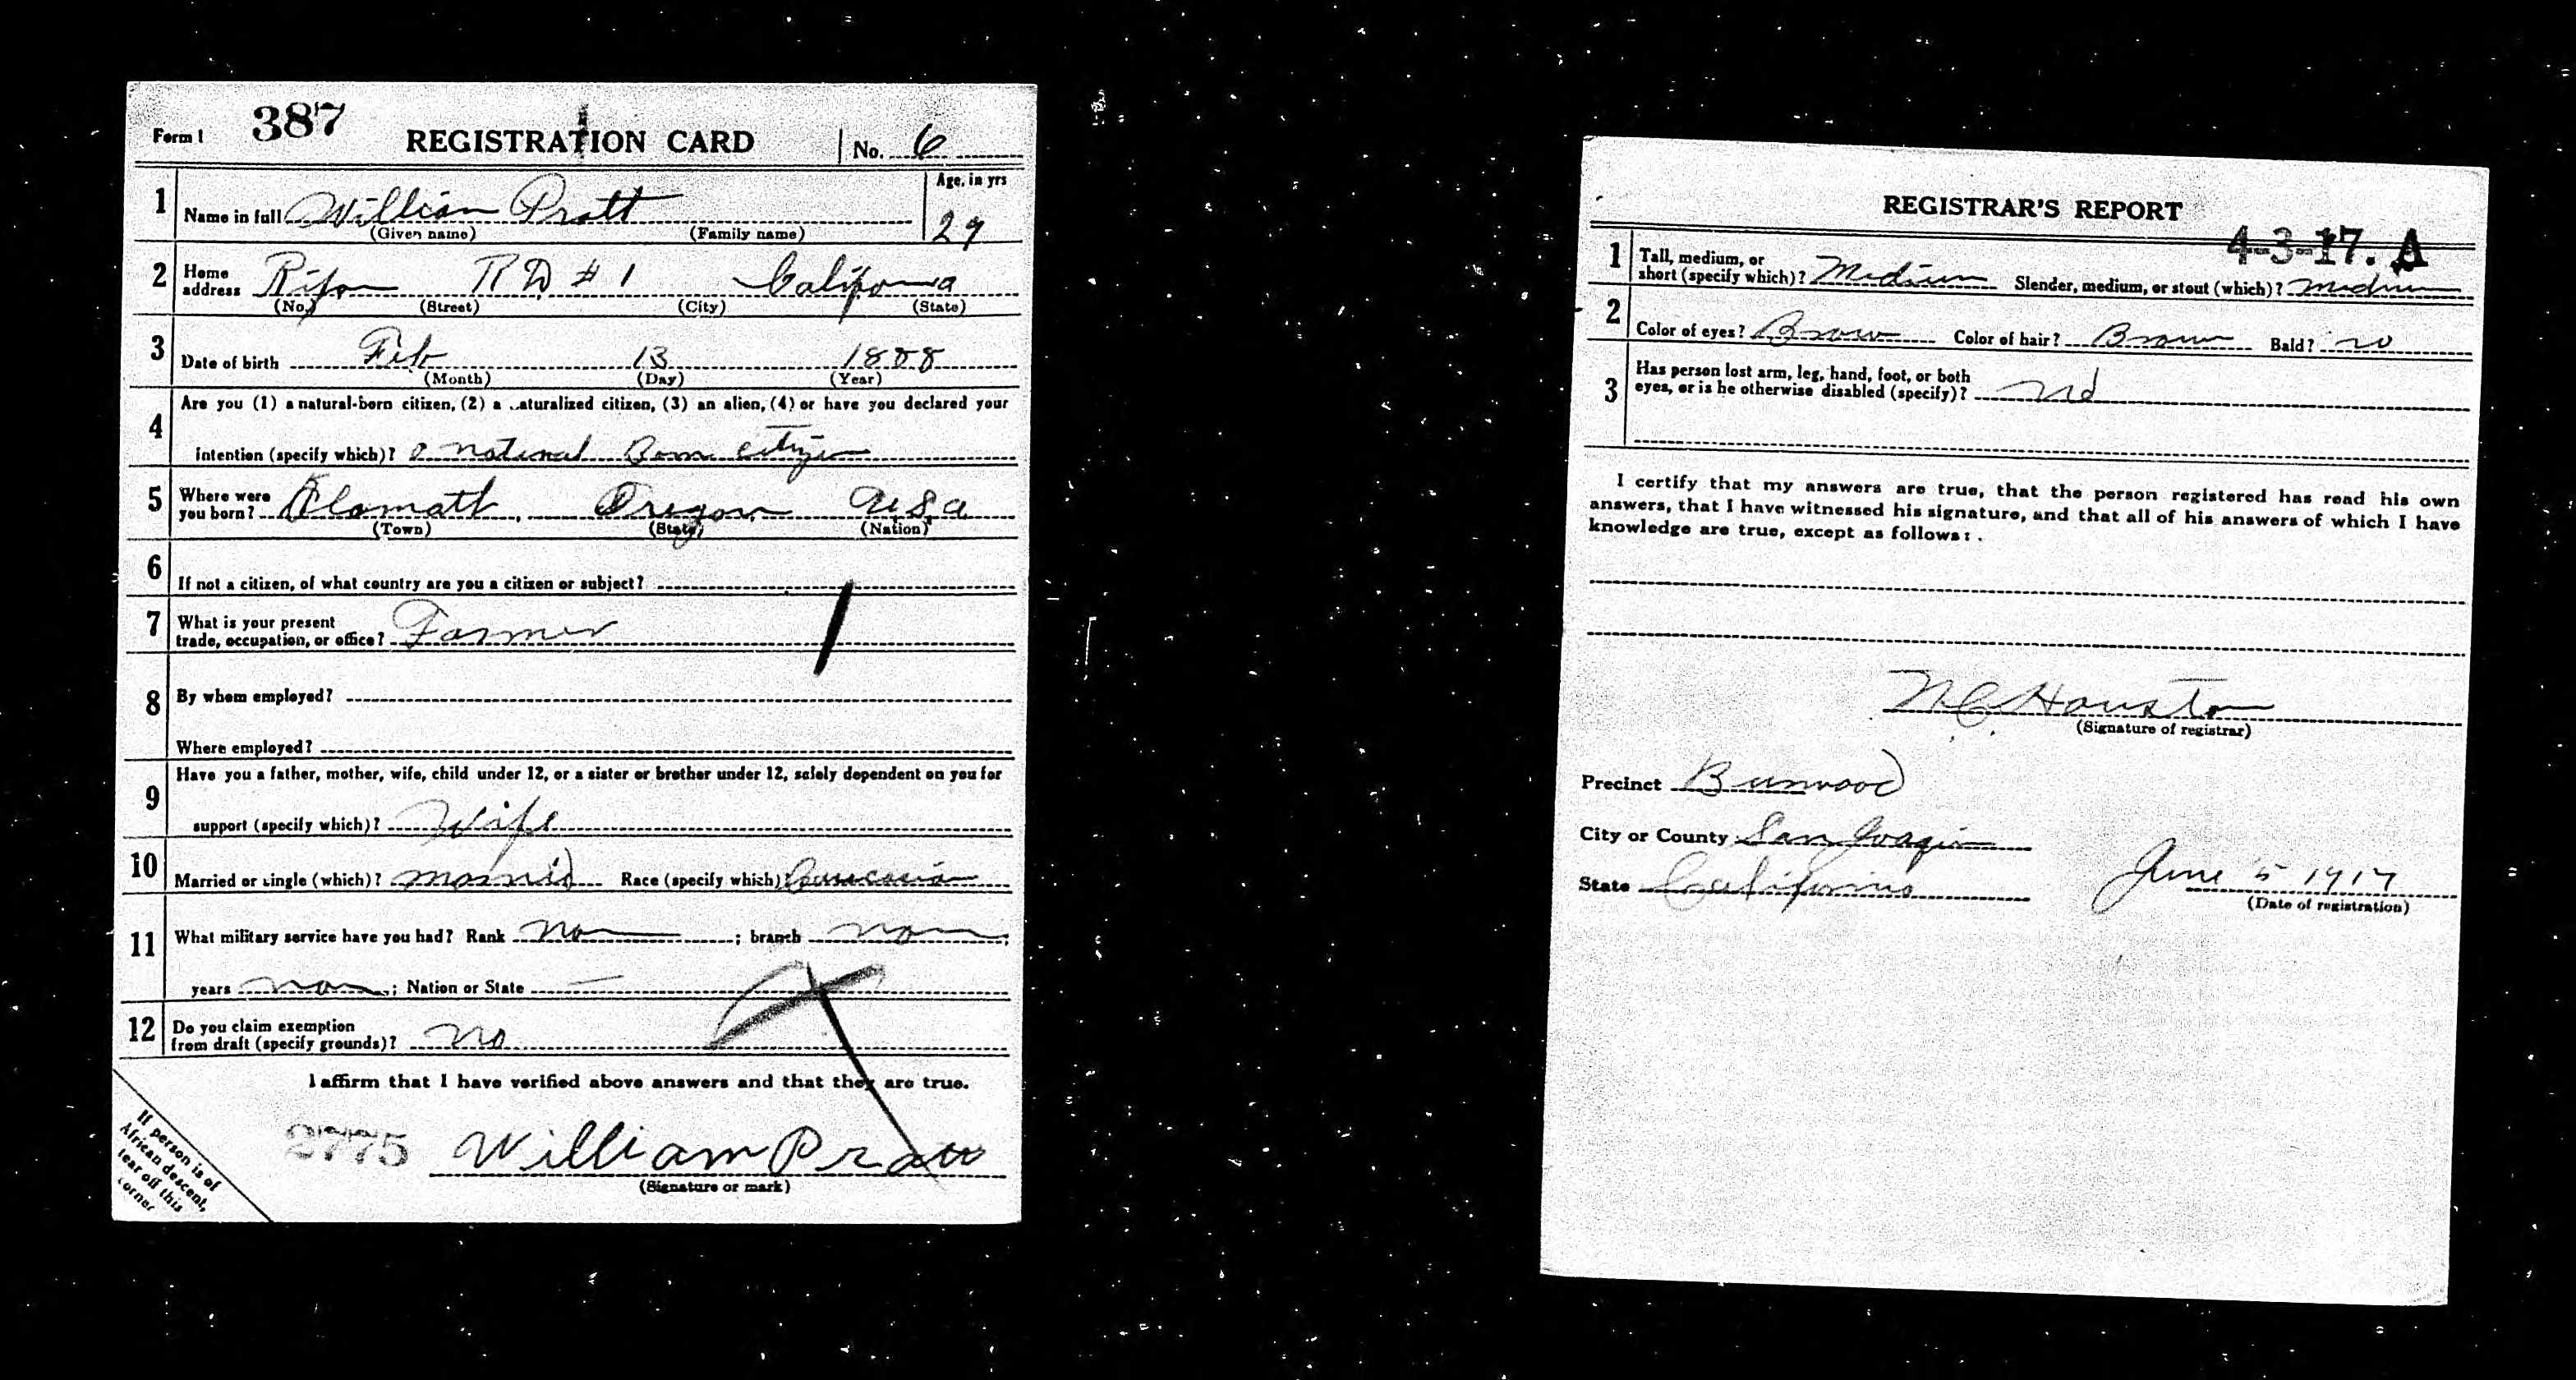 Form 1 387 REGISTRATION CARD No. 6
1 Name in full William Pratt Age, in yrs 29
(Given name) (Family name)
2 Home address Ripon R D # 1 California
(No.) (Street) (City) (State)
3 Date of birth Feb 13 1888
(Month) (Day) (Year)
4 Are you (1) a natural-born citizen, (2) a naturalized citizen, (3) an alien, (4) or have you declared your
intention (specify which)? a natural Born citizen
5 Where were you born? Klamath, Oregon USA
(Town) (State) (Nation)
6 If not a citizen, of what country are you a citizen or subject?
7 What is your present
trade, occupation, or office? Farmer
8 By whom employed?
Where employed?
9 Have you a father, mother, wife, child under 12, or a sister or brother under 12, solely dependent on you for
support (specify which)? Wife
10 Married or single (which)? married Race (specify which) Caucasian
11 What military service have you had? Rank non ; branch non ;
years non ; Nation or State —
12 Do you claim exemption
from draft (specify grounds)? no
I affirm that I have verified above answers and that they are true.
2775 William Pratt
(Signature or mark)
If person is of
African descent,
tear off this
corner
REGISTRAR'S REPORT
4-3-17. A
1 Tall, medium, or
short (specify which)? Medium Slender, medium, or stout (which)? medium
2 Color of eyes? Brown Color of hair? Brown Bald? no
3 Has person lost arm, leg, hand, foot, or both
eyes, or is he otherwise disabled (specify)? No
I certify that my answers are true, that the person registered has read his own
answers, that I have witnessed his signature, and that all of his answers of which I have
knowledge are true, except as follows:
Houston
(Signature of registrar)
Precinct Burwood
City or County San Joaquin
State California June 5 1917
(Date of registration)